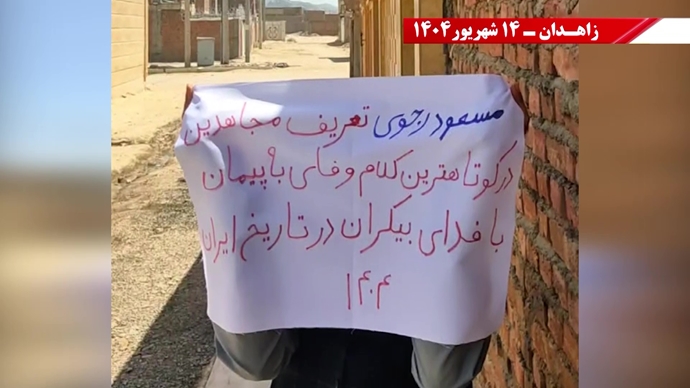 زاهـدان ــ ۱۴ شهریور ۱۴۰۴
مسعود رجوی تعریف مجاهدین
در کوتاهترین کلام وفای به پیمان
با فدای بیکران در تاریخ ایران
۱۴۰۴